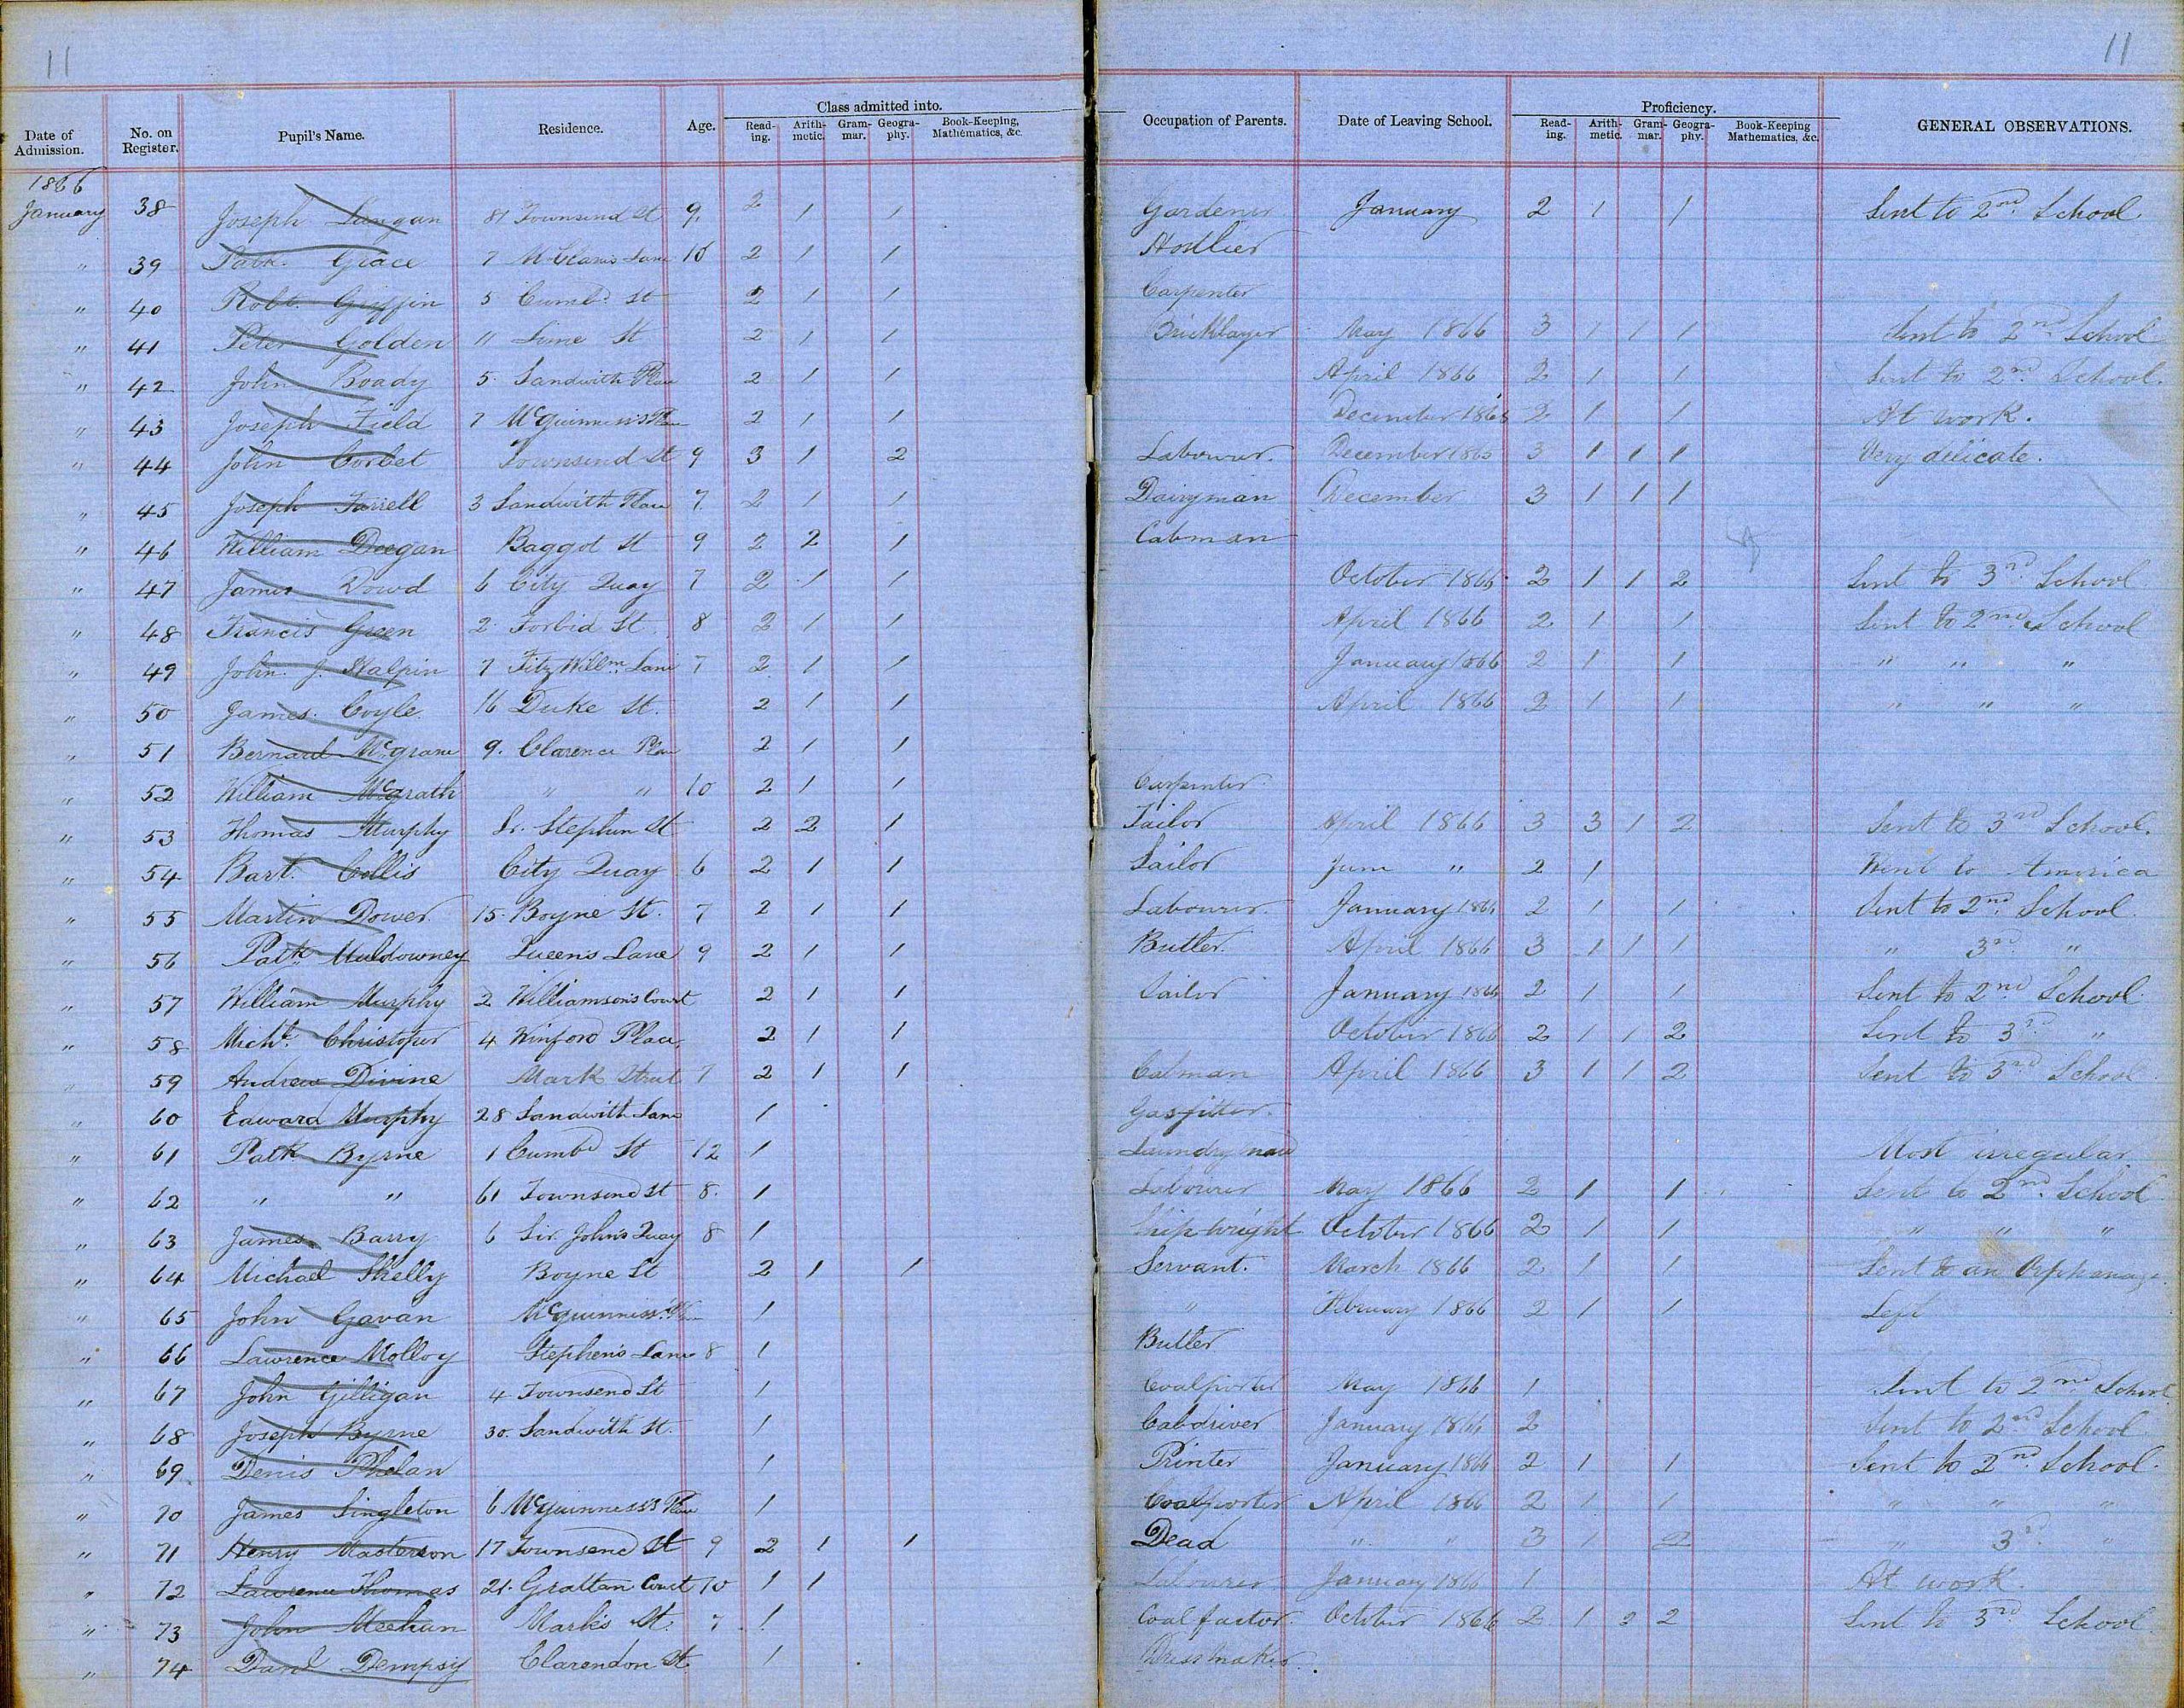 11
11
Date of Admission. No. on Register. Pupil's Name. Residence. Age. Class admitted into. Reading. Arithmetic. Grammar. Geography. Book-Keeping, Mathematics, &c. Occupation of Parents. Date of Leaving School. Proficiency. Reading. Arithmetic. Grammar. Geography. Book-Keeping Mathematics, &c. GENERAL OBSERVATIONS.
1866
January 38 Joseph Langan 81 Townsend St 9. 2 1 1 Gardener January 2 1 1 Sent to 2nd School
" 39 Patk. Grace 7 Lane 10 2 1 1 Hostlier
" 40 Robt. Griffin 5 Cumbd. St 2 1 1 Carpenter
" 41 Peter Golden 11 Lime St 2 1 1 Bricklayer May 1866 3 1 1 1 Sent to 2nd School
" 42 John Boady 5. Sandwith Place 2 1 1 April 1866 2 1 1 Sent to 2nd School.
" 43 Joseph Field 7 McGuinness's Place 2 1 1 December 2 1 1 At work.
" 44 John Corbet Townsend St 9 3 1 2 Labourer. December 1865 3 1 1 1 Very delicate.
" 45 Joseph Farrell 3 Sandwith Place 7. 2 1 1 Dairyman December 3 1 1 1
" 46 William Deegan Baggot St 9 2 2 1 Cabman
" 47 James Dowd 6 City Quay 7 2 1 1 October 1866 2 1 1 2 Sent to 3rd School
" 48 Francis Green 2 Forbid St 8 2 1 1 April 1866 2 1 1 Sent to 2nd School
" 49 John J. Halpin 7 Fitz Willm. Lane 7 2 1 1 January 1866 2 1 1 " " "
" 50 James Coyle 16 Duke St. 2 1 1 April 1866 2 1 1 " " "
" 51 Bernard McGrane 9. Clarence Place 2 1 1
" 52 William McGrath " " 10 2 1 1 Carpenter
" 53 Thomas Murphy Stephen St 2 2 1 Tailor April 1866 3 3 1 2 Sent to 3rd School.
" 54 Bart. Collis City Quay 6 2 1 1 Sailor June " 2 1 Went to America
" 55 Martin Dower 15. Boyne St. 7 2 1 1 Labourer. January 1866 2 1 1 Sent to 2nd School
" 56 Patk. Muldowney Queen's Lane 9 2 1 1 Butler. April 1866 3 1 1 1 " 3rd "
" 57 William Murphy 2 Williamson's Court 2 1 1 Tailor January 1866 2 1 1 Sent to 2nd School
" 58 Michl. Christoper 4 Winford Place, 2 1 1 October 1866 2 1 1 2 Sent to 3rd "
" 59 Andrew Divine Mark Street 7 2 1 1 Cabman April 1866 3 1 1 2 Sent to 3rd School
" 60 Edward Murphy 28 Sandwith Lane 1 Gasfitter.
" 61 Patk Byrne 1 Cumbd St 12 1 Laundry maid Most irregular
" 62 " " 61 Townsend St 8. 1 Labourer May 1866 2 1 1 Sent to 2nd School
" 63 James Barry 6 Sir John's Quay 8 1 Shipwright October 1866 2 1 1 " " "
" 64 Michael Shelly Boyne St 2 1 1 Servant. March 1866 2 1 1 Sent to an Orphanage.
" 65 John Gavan McGuinness's Place 1 " February 1866 2 1 1 Left
" 66 Lawrence Molloy Stephen's Lane 8 1 Butler
" 67 John Gilligan 4 Townsend St 1 Coalporter May 1866 1 Sent to 2nd School
" 68 Joseph Byrne 30. Sandwith St. 1 Cabdriver January 1866 2 Sent to 2nd School
" 69 Denis Phelan 1 Printer January 1866 2 1 1 Sent to 2nd School.
" 70 James Singleton 6 McGuinness's Place 1 Coalporter April 1866 2 1 1 " " "
" 71 Henry Masterson 17 Townsend St 9 2 1 1 Dead " " 3 1 2 " 3rd "
" 72 Lawrence Thomas 21. Grattan Court 10 1 1 Labourer January 1866 1 At work.
" 73 John Meehan Mark's St. 7 1 Coal factor. October 1866 2 1 2 2 Sent to 3rd School
" 74 Danl Dempsy Clarendon St. 1 Dressmaker.